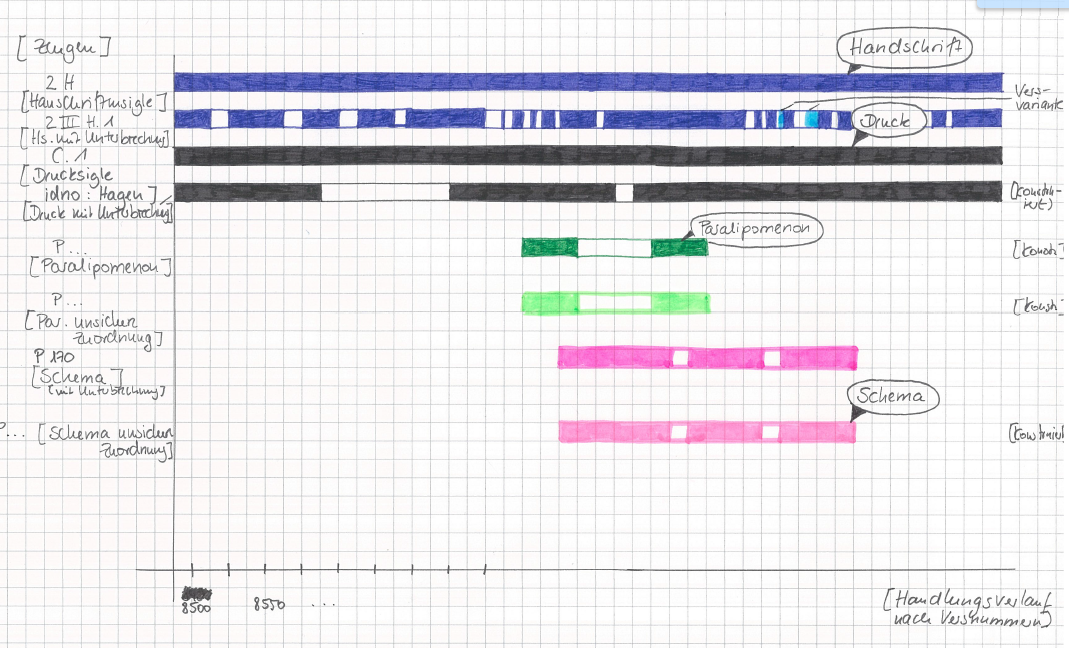 [Zeugen]
Handschrift
2 H
[Handschriftensigle]
Vers-
variante
2 III H.1
[Hs. mit Unterbrechung]
Druck
C.1
[Drucksigle
idno: Hagen]
[Druck mit Unterbrechung]
[konstru-
iert)
Paralipomenon
P...
[Paralipomenon]
[konstr
P...
[Par. unsicherer
Zuordnung]
[konstr
P 170
[Schema]
[mit Unterbrechung]
Schema
P... [Schema unsicherer
Zuordnung]
[konstruiert
8500
8550 ...
[Handlungsverlauf
nach Versnummern]